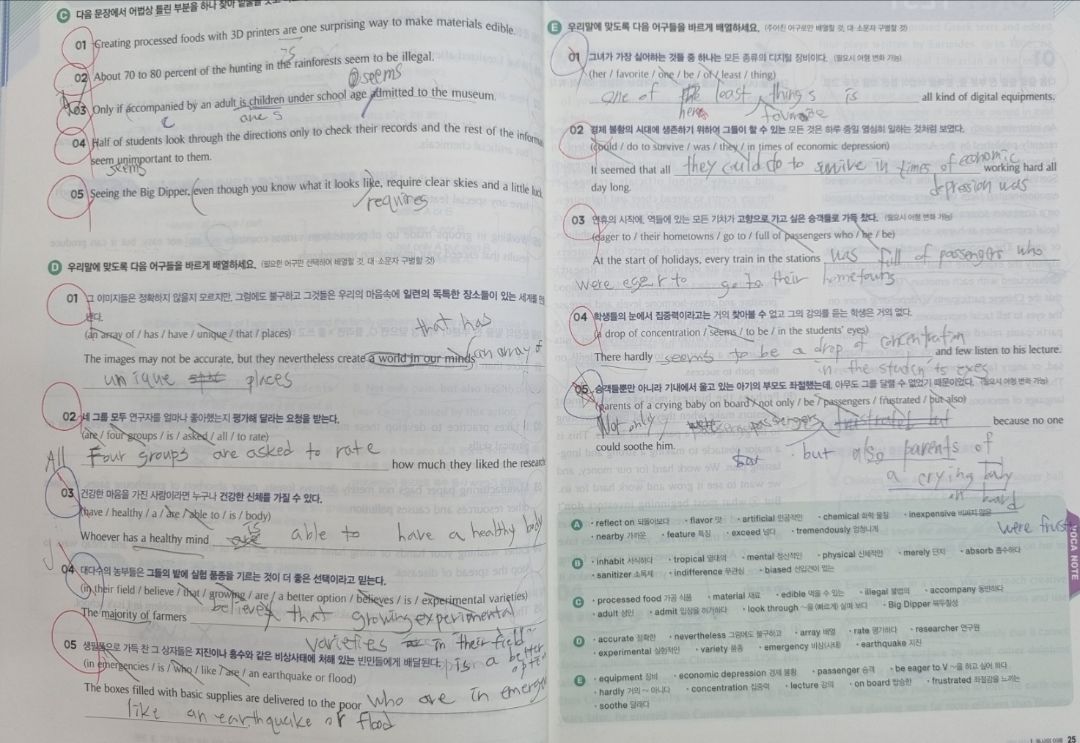 C 다음 문장에서 어법상 틀린 부분을 하나 찾아
01 Creating processed foods with 3D printers are one surprising way to make materials edible.
is
02 About 70 to 80 percent of the hunting in the rainforests seem to be illegal.
seems
03 Only if accompanied by an adult is children under school age admitted to the museum.
are
04 Half of students look through the directions only to check their records and the rest of the
seem unimportant to them.
seems
05 Seeing the Big Dipper, even though you know what it looks like, require clear skies and a little luck
requires
D 우리말에 맞도록 다음 어구들을 바르게 배열하세요. (필요한 어구만 선택하여 배열할 것, 대·소문자 구별할 것)
01 그 이미지들은 정확하지 않을지 모르지만, 그럼에도 불구하고 그것들은 우리의 마음속에 일련의 독특한 장소들이 있는 세계를
(an array of / has / have / unique / that / places)
that has
The images may not be accurate, but they nevertheless create a world in our minds an array of
unique places
02 네 그룹 모두 연구자를 얼마나 좋아했는지 평가해 달라는 요청을 받는다.
(are / four groups / is / asked / all / to rate)
All Four groups are asked to rate how much they liked the
03 건강한 마음을 가진 사람이라면 누구나 건강한 신체를 가질 수 있다.
(have / healthy / a / are / able to / is / body)
Whoever has a healthy mind is able to have a healthy body
04 대다수의 농부들은 그들의 밭에 실험 품종을 기르는 것이 더 좋은 선택이라고 믿는다.
(in their field / believe / that / growing / are / a better option / believes / is / experimental varieties)
The majority of farmers believe that growing experimental
varieties in their field
is a better
05 생필품으로 가득 찬 그 상자들은 지진이나 홍수와 같은 비상사태에 처해 있는 빈민들에게 배달된다.
(in emergencies / is / who / like / are / an earthquake or flood)
The boxes filled with basic supplies are delivered to the poor who are in
like an earthquake or flood
E 우리말에 맞도록 다음 어구들을 바르게 배열하세요. (주어진 어구로만 배열할 것, 대·소문자 구별할 것)
01 그녀가 가장 싫어하는 것들 중 하나는 모든 종류의 디지털 장비이다. (필요시 어형 변화 가능)
(her / favorite / one / be / of / least / thing)
one of least things is all kind of digital equipments.
her favorite
02 경제 불황의 시대에 생존하기 위하여 그들이 할 수 있는 모든 것은 하루 종일 열심히 일하는 것처럼 보였다.
(could / do to survive / was / they / in times of economic depression)
It seemed that all they could do to survive in times of economic working hard all
day long.
depression was
03 연휴의 시작에, 역들에 있는 모든 기차가 고향으로 가고 싶은 승객들로 가득 찼다. (필요시 어형 변화 가능)
(eager to / their hometowns / go to / full of passengers who / be / be)
At the start of holidays, every train in the stations was full of passengers who
were eger to go to their hometowns
04 학생들의 눈에서 집중력이라고는 거의 찾아볼 수 없고 그의 강의를 듣는 학생은 거의 없다.
(a drop of concentration / seems / to be / in the students' eyes)
There hardly seems to be a drop of concentration and few listen to his lecture.
in the
05 승객들뿐만 아니라 기내에서 울고 있는 아기의 부모도 좌절했는데, 아무도 그를 달랠 수 없었기 때문이었다. (필요시 어형 변화 가능)
(parents of a crying baby on board / not only / be / passengers / frustrated / but also)
Not only passengers because no one
could soothe him.
but also parents of
a crying baby
A · reflect on 되돌아보다 · flavor 맛 · artificial 인공적인 · chemical 화학 물질 · inexpensive 비싸지 않은
· nearby 가까운 · feature 특징 · exceed 넘다 · tremendously 엄청나게
were
B · inhabit 서식하다 · tropical 열대의 · mental 정신적인 · physical 신체적인 · merely 단지 · absorb 흡수하다
· sanitizer 소독제 · indifference 무관심 · biased 선입견이 있는
C · processed food 가공 식품 · material 재료 · edible 먹을 수 있는 · illegal 불법의 · accompany 동반하다
· adult 성인 · admit 입장을 허가하다 · look through ~을 (빠르게) 살펴 보다 · Big Dipper 북두칠성
D · accurate 정확한 · nevertheless 그럼에도 불구하고 · array 배열 · rate 평가하다 · researcher 연구원
· experimental 실험적인 · variety 품종 · emergency 비상(사태) · earthquake 지진
E · equipment 장비 · economic depression 경제 불황 · passenger 승객 · be eager to V ~을 하고 싶어 하다
· hardly 거의 ~ 아니다 · concentration 집중력 · lecture 강의 · on board 탑승한 · frustrated 좌절감을 느끼는
· soothe 달래다
VOCA NOTE
25